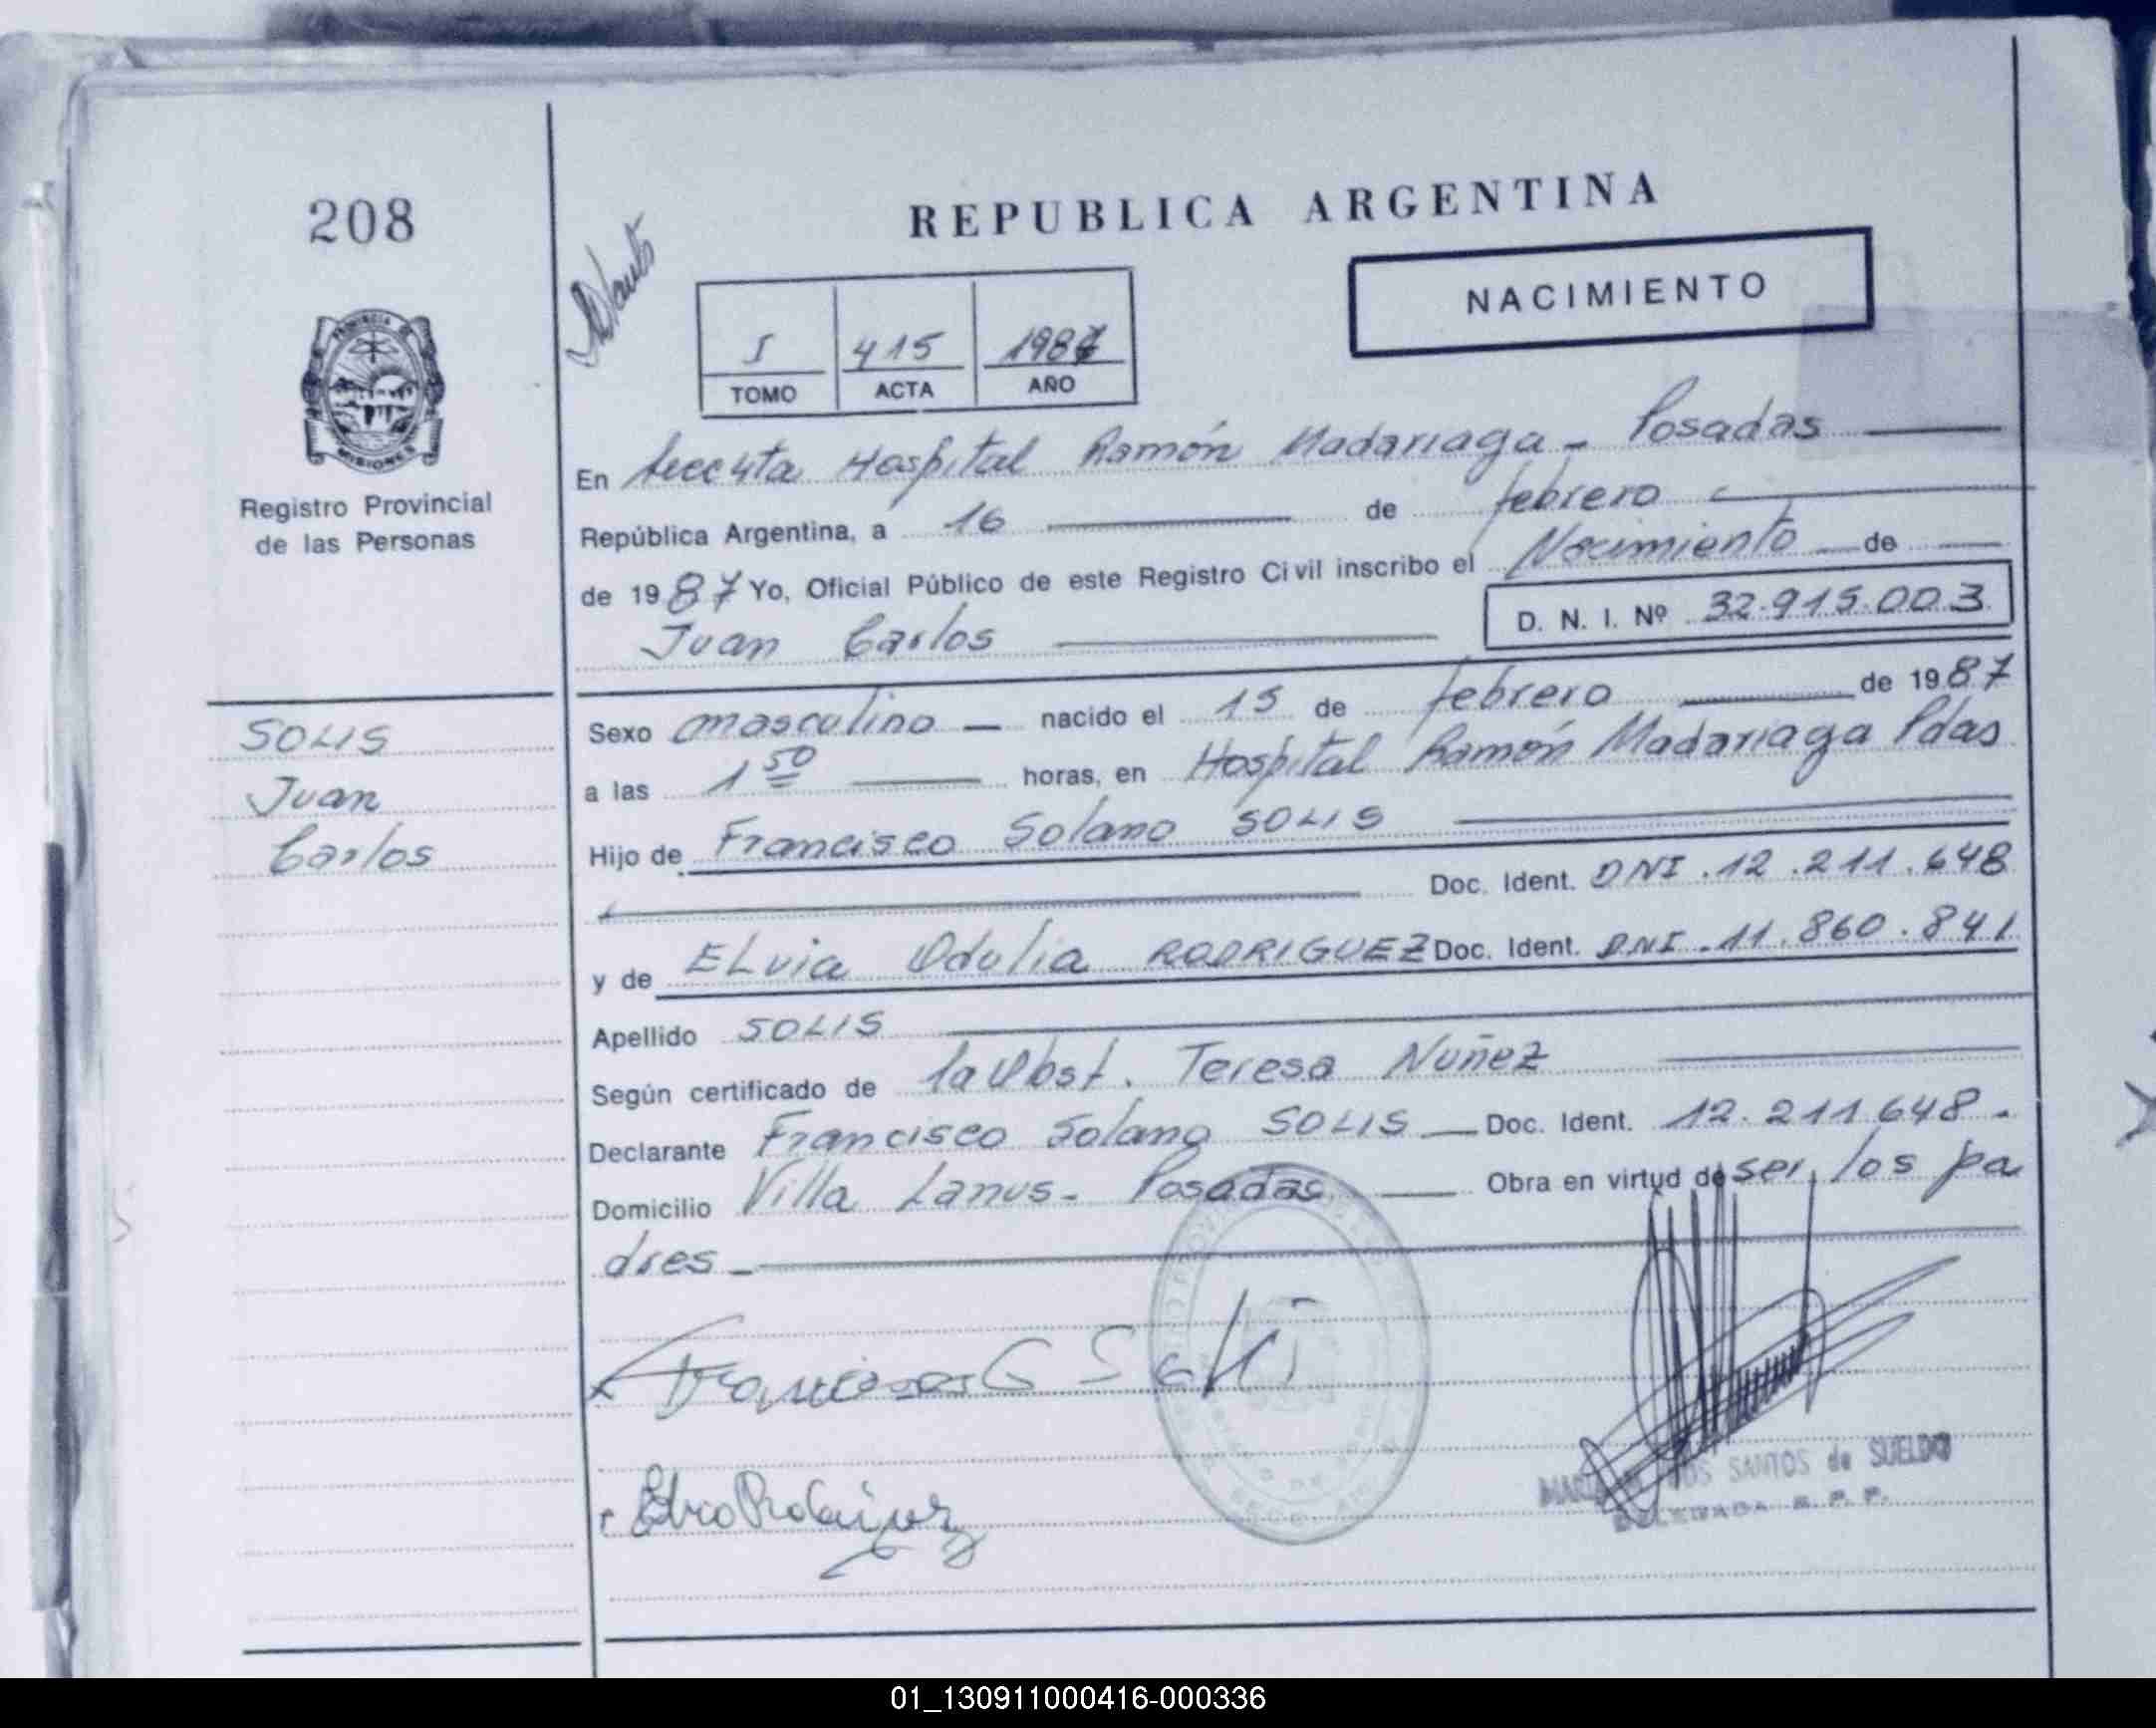 208
REPUBLICA ARGENTINA
NACIMIENTO
I 415 1987
TOMO ACTA AÑO
PROVINCIA DE
MISIONES
Registro Provincial
de las Personas
En Hospital Ramón Madariaga - Posadas
República Argentina, a 16 de febrero
de 1987 Yo, Oficial Público de este Registro Civil inscribo el Nacimiento de
Juan Carlos D. N. I. Nº 32.915.003
SOLIS
Juan
Carlos
Sexo masculino nacido el 15 de febrero de 1987
a las 1 50 horas, en Hospital Ramón Madariaga Pdas
Hijo de Francisco Solano SOLIS
Doc. Ident. DNI. 12.211.648
y de ELvia Odulia RODRIGUEZ Doc. Ident. DNI. 11.860.841
Apellido SOLIS
Según certificado de la Obst. Teresa Nuñez
Declarante Francisco Solano SOLIS Doc. Ident. 12.211.648.
Domicilio Villa Lanus - Posadas Obra en virtud de ser los pa
dres
SANTOS de SUELDO
01_130911000416-000336